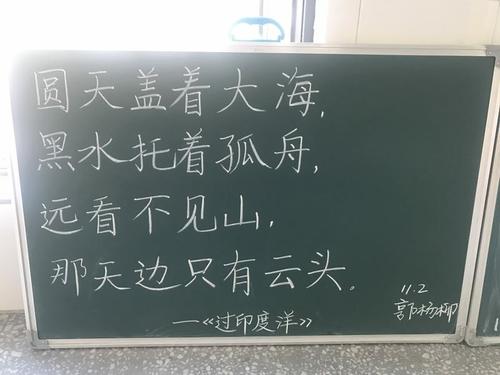 圆天盖着大海,
黑水托着孤舟,
远看不见山,
那天边只有云头。
—《过印度洋》
11.2
郭杨柳